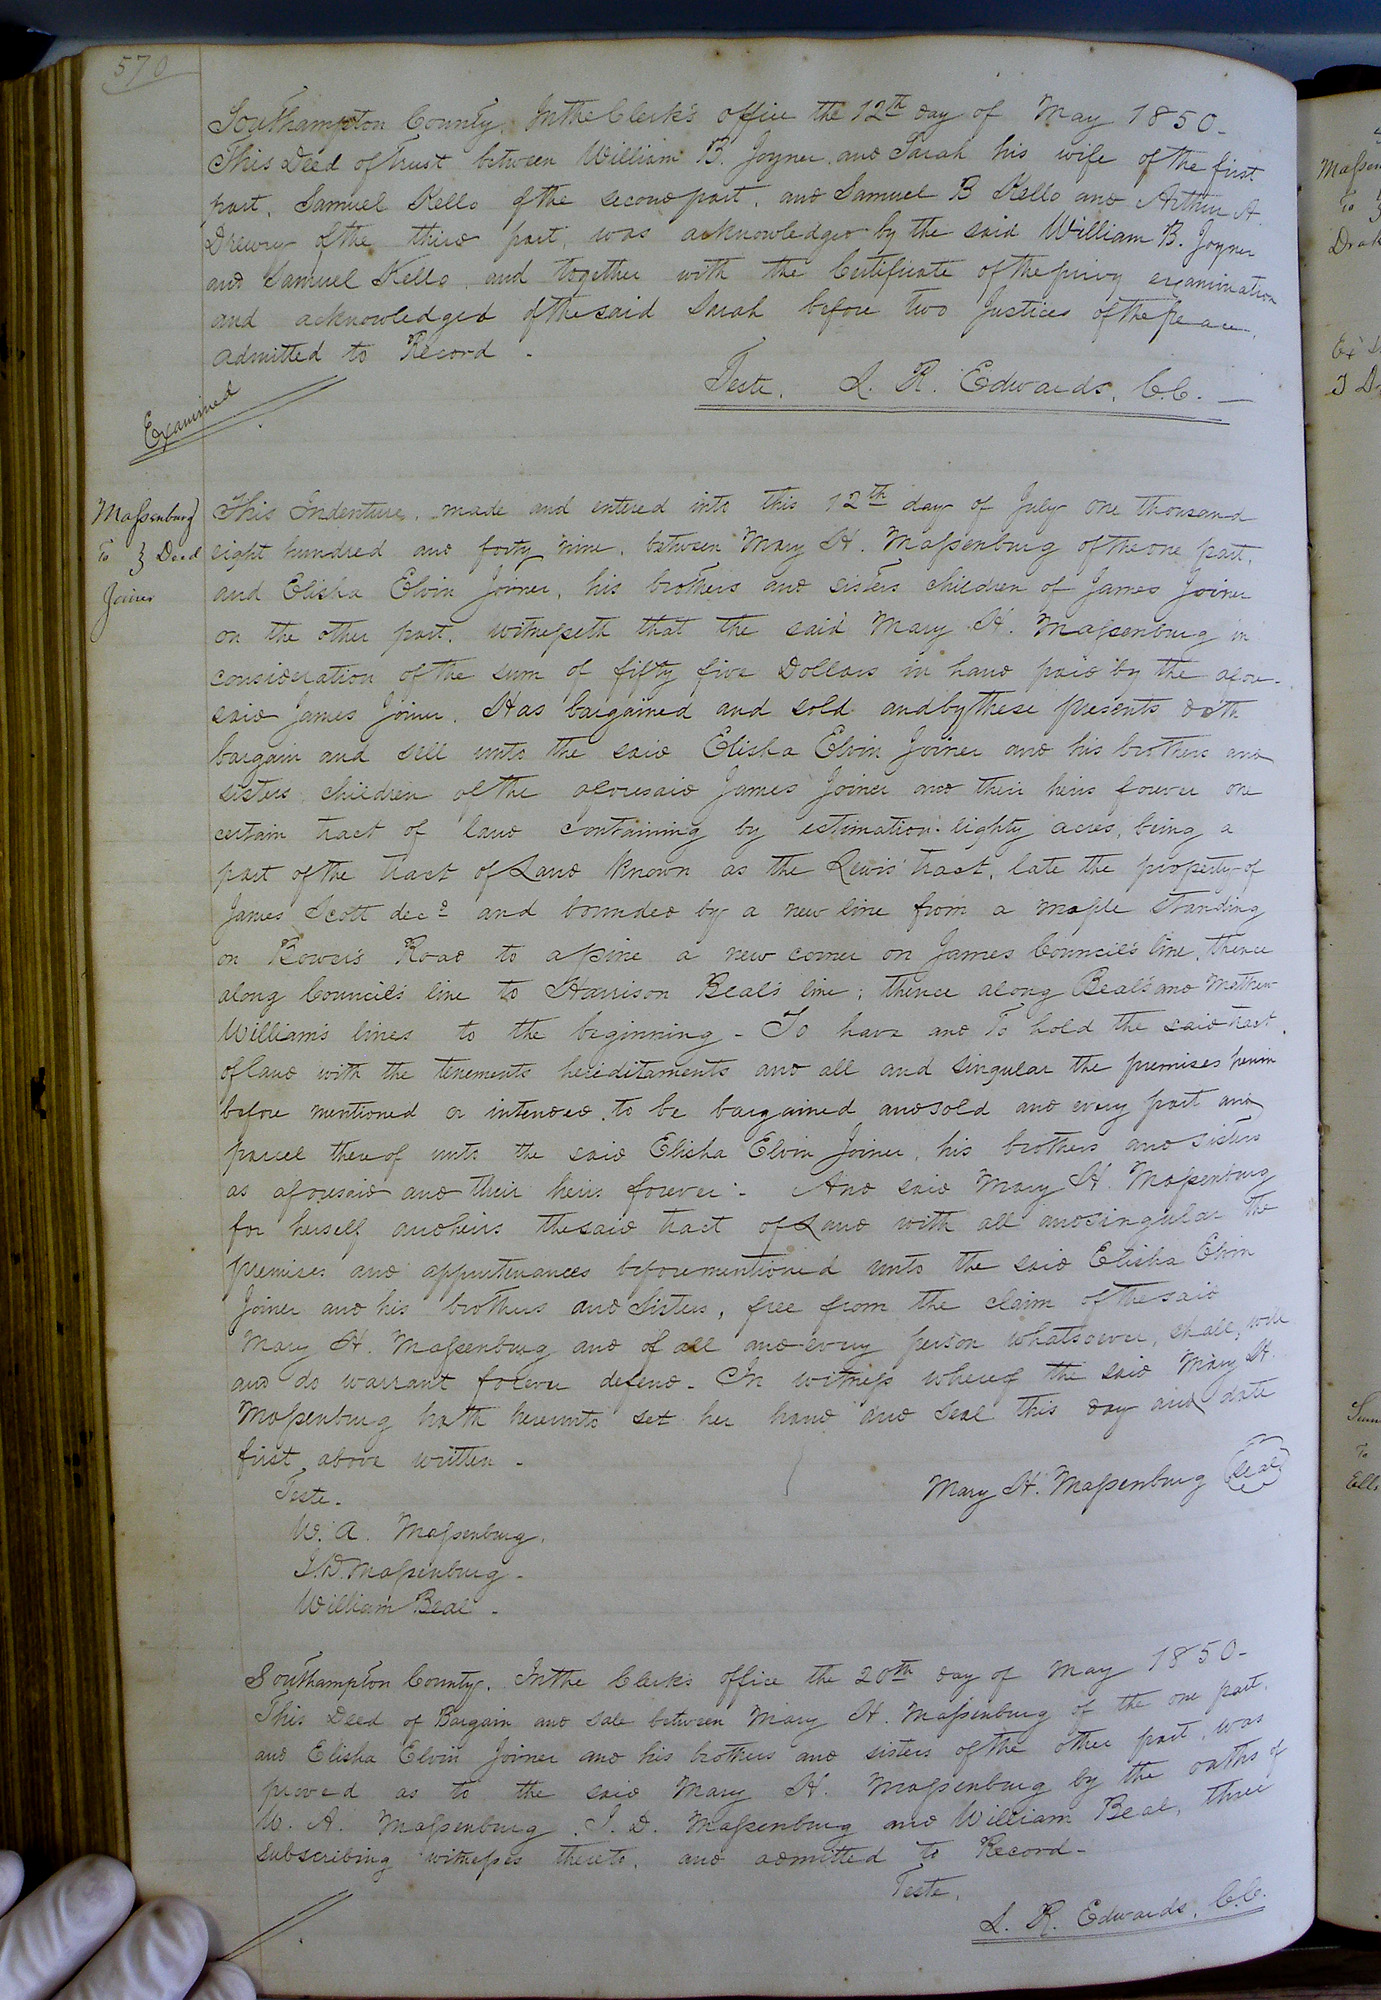 570
Southampton County, In the Clerk's office the 12th day of May 1850 -
This Deed of Trust between William B. Joyner and Sarah his wife of the first
part, Samuel Kello of the second part, and Samuel B Kello and Arthur A
Drewry of the third part, was acknowledged by the said William B. Joyner
and Samuel Kello, and together with the Certificate of the privy examination
and acknowledged of the said Sarah before two Justices of the peace,
admitted to Record -
Teste, L. R. Edwards, C.C. -
Examined
Massenburg
To } Deed
Joiner
This Indenture, made and entered into this 12th day of July one thousand
eight hundred and forty nine, between Mary H. Massenburg of the one part,
and Elisha Elvin Joiner, his brothers and sisters children of James Joiner
on the other part, witnesseth that the said Mary H. Massenburg in
consideration of the sum of fifty five Dollars in hand paid by the afore-
said James Joiner, Has bargained and sold and by these presents doth
bargain and sell unto the said Elisha Elvin Joiner and his brothers and
sisters, children of the aforesaid James Joiner and their heirs forever one
certain tract of land containing by estimation eighty acres, being a
part of the tract of Land known as the Lewis tract, late the property of
James Scott decd and bounded by a new line from a maple standing
on Bower's Road to a pine a new corner on James Council's line, thence
along Council's line to Harrison Beal's line; thence along Beal's and Mathew
William's lines to the beginning - To have and To hold the said tract
of land with the tenements hereditaments and all and singular the premises herein
before mentioned or intended to be bargained and sold and every part and
parcel thereof unto the said Elisha Elvin Joiner, his brothers and sisters
as aforesaid and their heirs forever - And said Mary H. Massenburg
for herself and heirs the said tract of Land with all and singular the
premises and appurtenances before mentioned unto the said Elisha Elvin
Joiner and his brothers and sisters, free from the claim of the said
Mary H. Massenburg and of all and every person whatsoever, shall, will
and do warrant forever defend - In witness whereof the said Mary H.
Massenburg hath hereunto set her hand and seal this day and date
first above written -
Teste -
Mary H. Massenburg Seal
W. A. Massenburg,
J. D. Massenburg -
William Beal -
Southampton County, In the Clerk's office the 20th day of May 1850 -
This Deed of Bargain and sale between Mary H. Massenburg of the one part,
and Elisha Elvin Joiner and his brothers and sisters of the other part, was
proved as to the said Mary H. Massenburg by the oaths of
W. A. Massenburg, J. D. Massenburg and William Beal, three
subscribing witnesses thereto, and admitted to Record -
Teste,
L. R. Edwards, C.C.
To
To